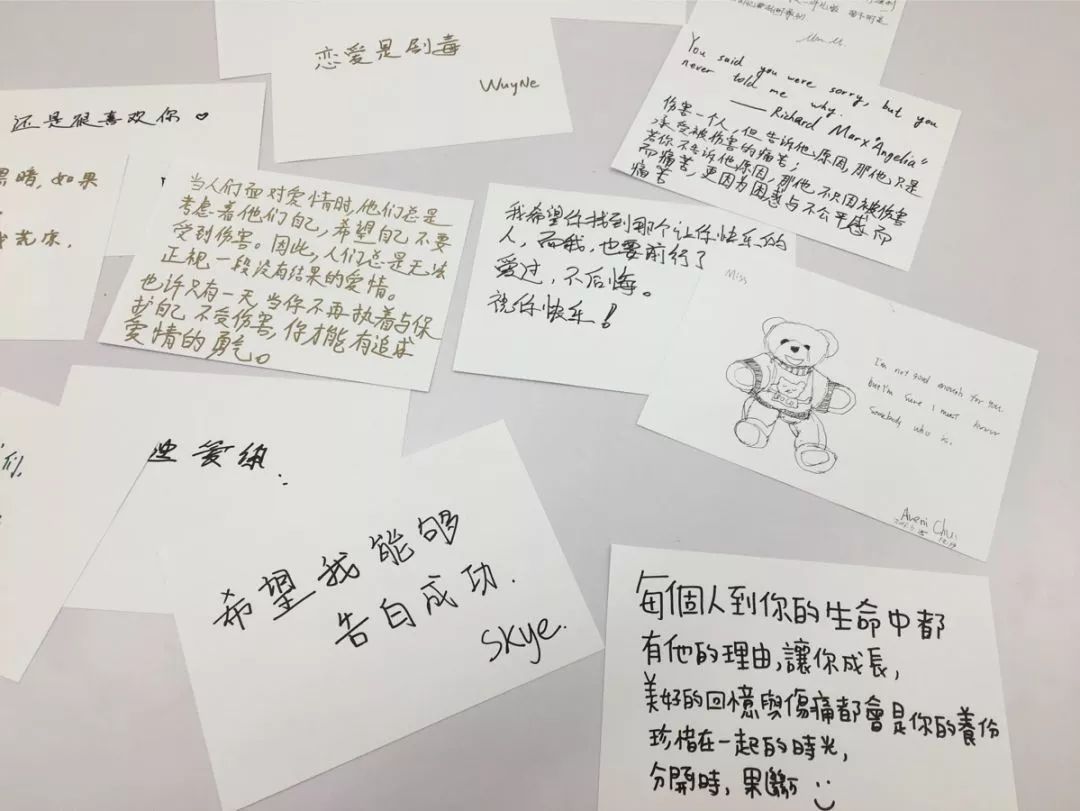 恋爱是剧毒
WuyNe
You said you were sorry, but you
never told me why.
—— Richard Marx "Angelia"
伤害一个人，但告诉他原因，那他只是
承受被伤害的痛苦；
若你不告诉他原因，那他不只因被伤害
而痛苦，更因为困惑与不公平感而
痛苦
还是很喜欢你
时，如果
当人们面对爱情时，他们总是
考虑着他们自己，希望自己不要
受到伤害。因此，人们总是无法
正视一段没有结果的爱情。
也许只有一天当你不再执着与保
护自己不受伤害，你才能有追求
爱情的勇气。
我希望你找到那个让你快乐的
人，而我，也要前行了
爱过，不后悔。
祝你快乐！
Miss
I'm not good enough for you
but I'm sure I must know
somebody who is.
Chu
希望我能够
告白成功.
Skye.
每個人到你的生命中都
有他的理由,讓你成長,
美好的回憶與傷痛都會是你的養份
珍惜在一起的時光,
分開時,果斷